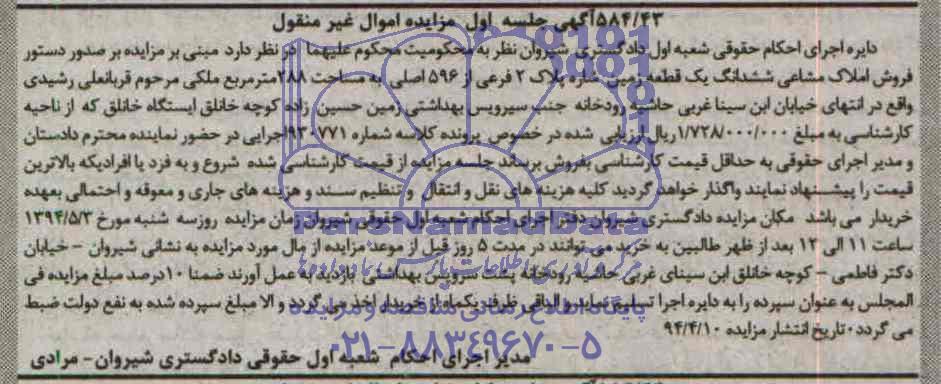 ۵۸۴/۴۳آگهی جلسه اول مزایده اموال غیر منقول
دایره اجرای احکام حقوقی شعبه اول دادگستری شیروان نظر به محکومیت محکوم علیهما در نظر دارد مبنی بر مزایده بر صدور دستور
فروش املاک مشاعی ششدانگ یک قطعه زمین شماره پلاک ۲ فرعی از ۵۹۶ اصلی به مساحت ۲۸۸مترمربع ملکی مرحوم قربانعلی رشیدی
واقع در انتهای خیابان ابن سینا غربی حاشیه رودخانه جنب سیرویس بهداشتی زمین حسین زاده کوچه خانلق ایستگاه خانلق که از ناحیه
کارشناسی به مبلغ ۱/۷۲۸/۰۰۰/۰۰۰ریال ارزیابی شده در خصوص پرونده کلاسه شماره ۹۳۰۷۷۱اجرایی در حضور نماینده محترم دادستان
و مدیر اجرای حقوقی به حداقل قیمت کارشناسی بفروش برساند جلسه مزایده از قیمت کارشناسی شده شروع و به فرد یا افرادیکه بالاترین
قیمت را پیشنهاد نمایند واگذار خواهد گردید کلیه هزینه های نقل و انتقال و تنظیم سند و هزینه های جاری و معوقه و احتمالی بعهده
خریدار می باشد مکان مزایده دادگستری شیروان دفتر اجرای احکام شعبه اول حقوقی شیروان زمان مزایده روزسه شنبه مورخ ۱۳۹۴/۵/۳
ساعت ۱۱ الی ۱۲ بعد از ظهر طالبین به خرید می توانند در مدت ۵ روز قبل از موعد مزایده از مال مورد مزایده به نشانی شیروان - خیابان
دکتر فاطمی - کوچه خانلق ابن سینای غربی حاشیه رودخانه پشت سرویس بهداشتی بازدید به عمل آورند ضمنا ۱۰درصد مبلغ مزایده فی
المجلس به عنوان سپرده را به دایره اجرا تسلیم نمایند و الباقی ظرف یکماه از خریدار اخذ می گردد و الا مبلغ سپرده شده به نفع دولت ضبط
می گردد.تاریخ انتشار مزایده ۹۴/۴/۱۰
مدیر اجرای احکام شعبه اول حقوقی دادگستری شیروان- مرادی
ParsNamadData
مرکز فرآوری اطلاعات پارس نماد داده ها
پایگاه اطلاع رسانی مناقصه و مزایده
۰۲۱-۸۸۳۴۹۶۷۰-۵